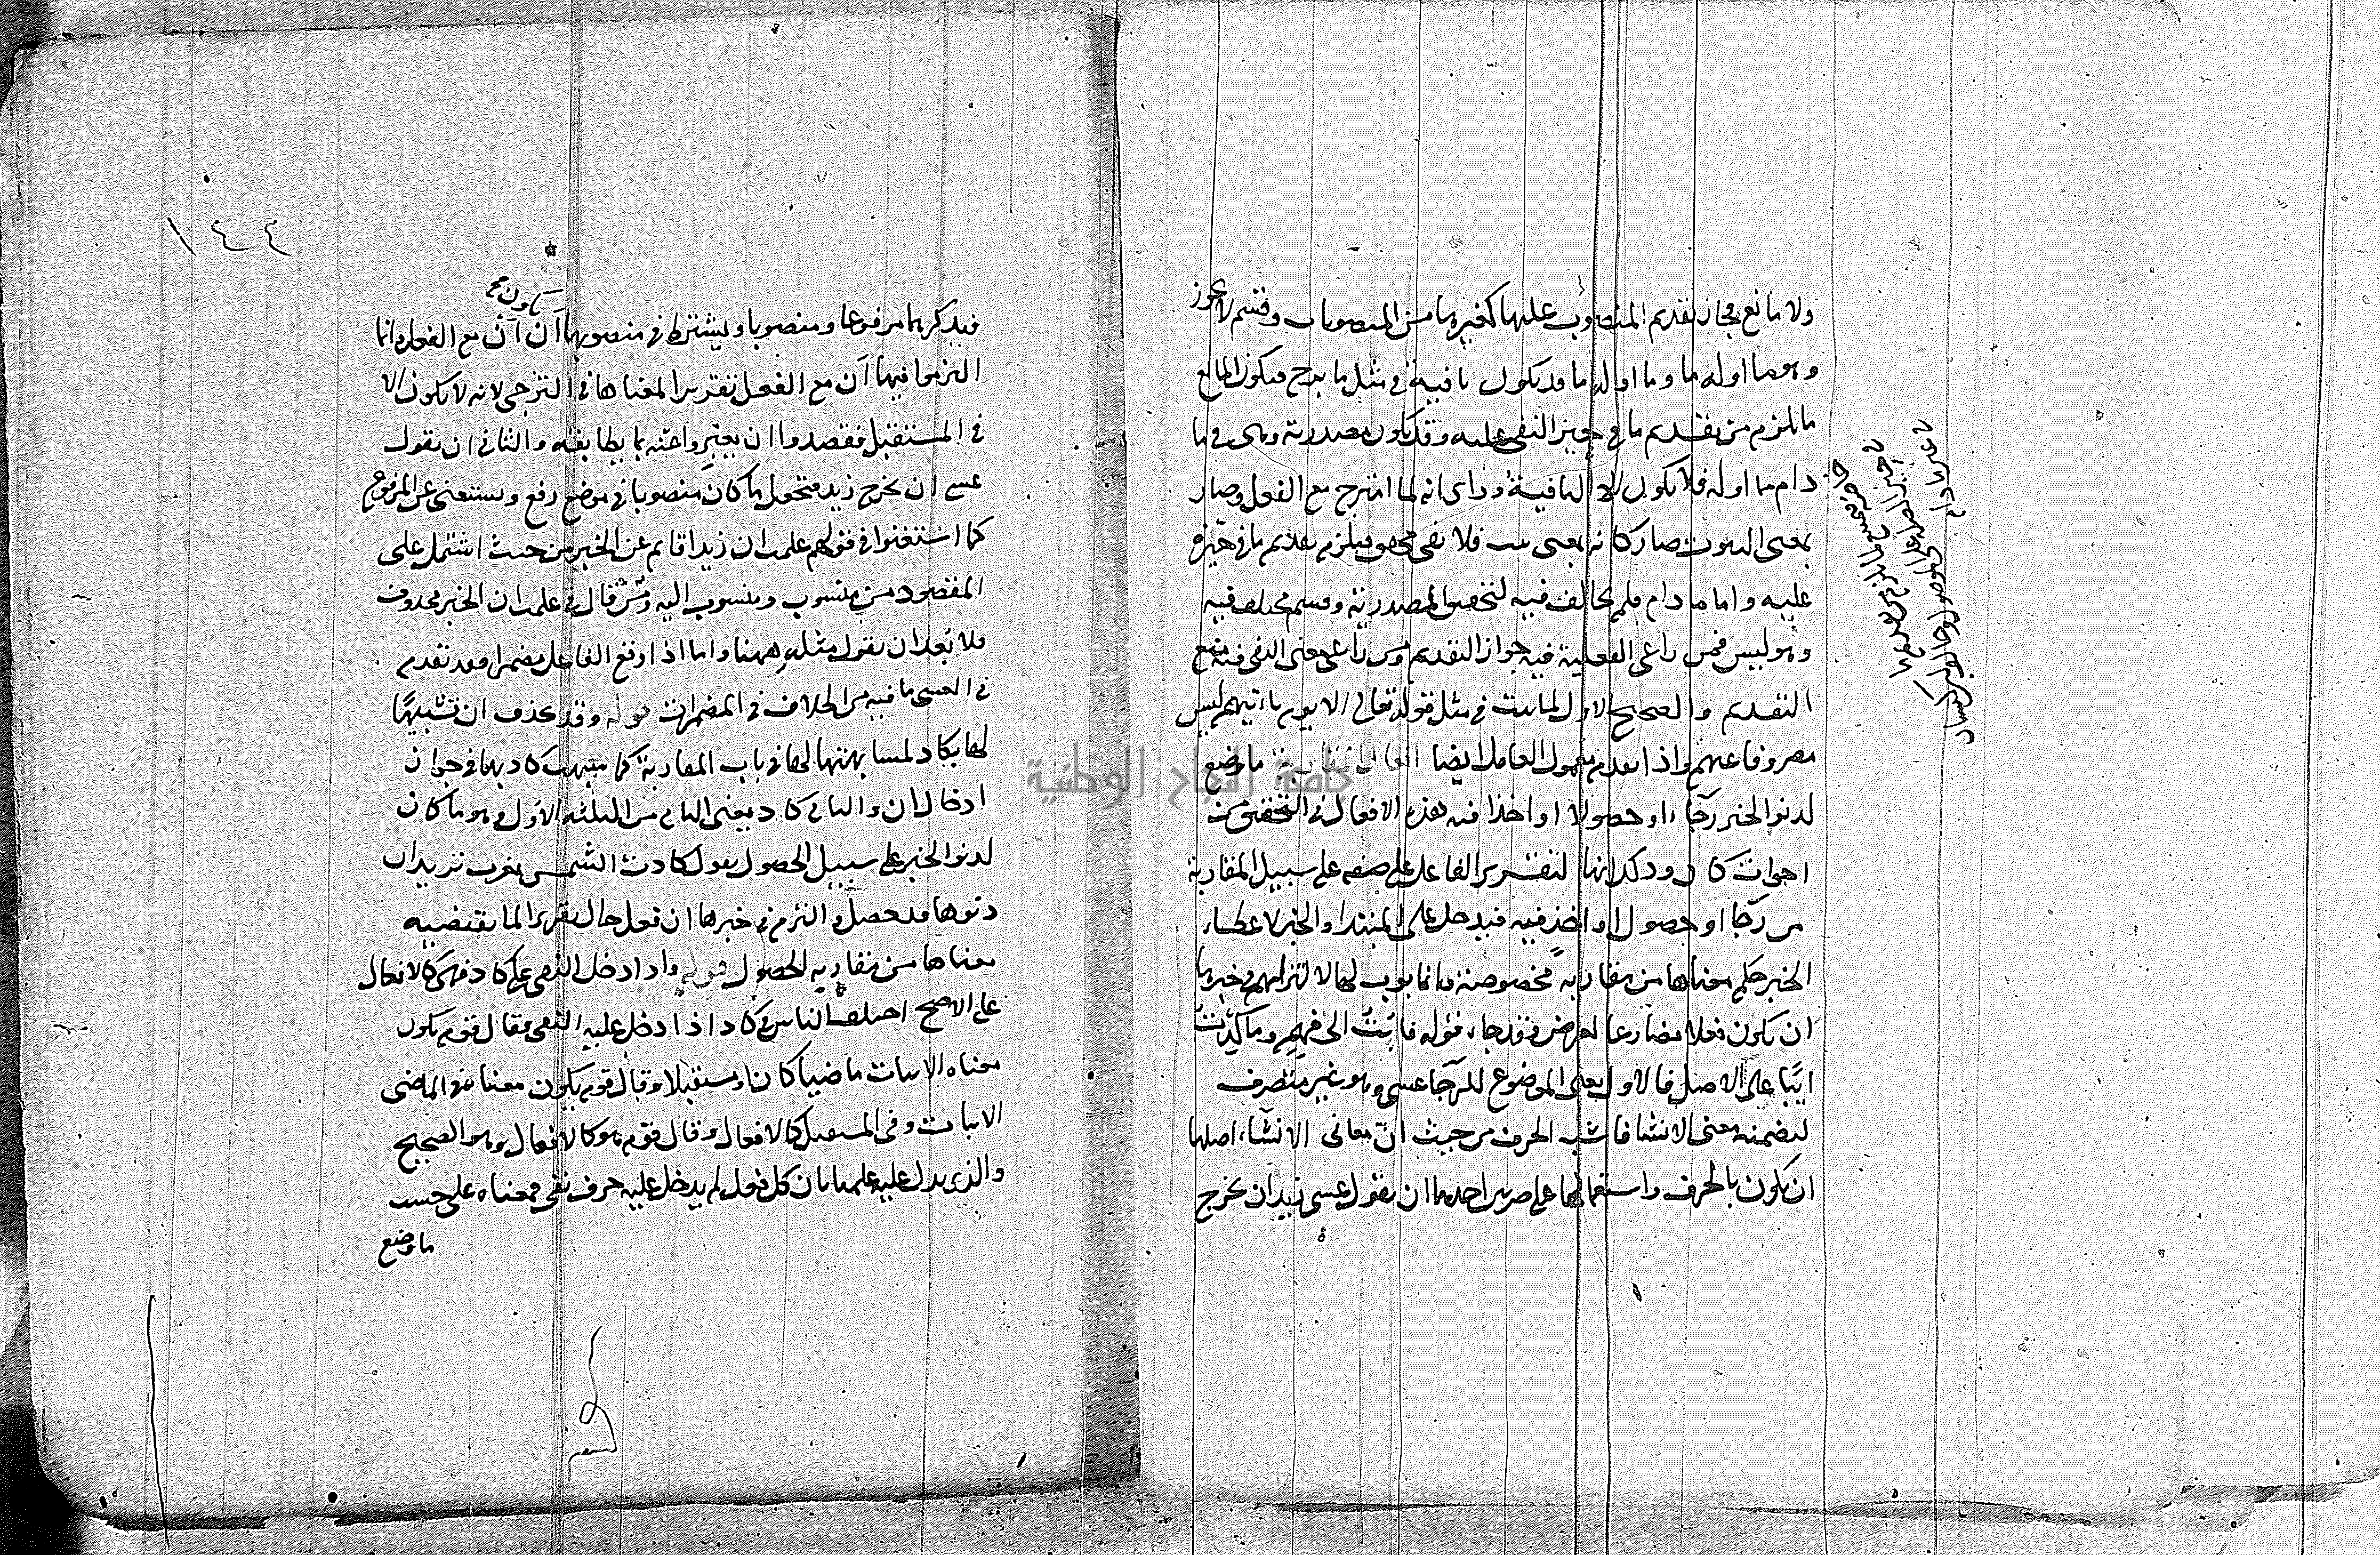 ولا مانع فجاز تقديم المنصوب عليها كغيرها من المنصوبات وقسم لا يجوز
وهو ما اوله ما وما اوله ما قد يكون نافية في مثل ما برح فيكون المانع
ما يلزم من تقديم ما في حيز النفي عليه وقد يكون مصدرية وهي في ما
دام ما اوله فلا يكون الا النافية وراى انه لما امتزج مع الفعل وصار
بمعنى الثبوت صار كانه بمعنى فلا نفي محقق فيلزم تقديم ما في حيزه
عليه واما ما دام فلم يخالف فيه لتحقق المصدرية وقسم مختلف فيه
وهو ليس فمن راعى الفعلية فيه جواز التقديم ومن راعى معنى النفي فيه منع
التقديم والصحيح الاول لما ثبت في مثل قوله تعالى الا يوم ياتيهم ليس
مصروفا عنهم واذا تقدم معمول العامل ايضا افعال المقاربة ما وضع
لدنو الخبر رجاء او حصولا او اخذا فيه هذه الافعال في التحقيق من
اخوات كان وذلك انها لتقرير الفاعل على صفة على سبيل المقاربة
من رجا او حصول او اخذ فيه فيدخل على المبتدا والخبر لاعطاء
الخبر حكم معناها من مقاربة مخصوصة وانما بوب لها لالتزامهم في خبرها
ان يكون فعلا مضارعا لغرض وقد جاء قوله فابت الى فهم وما كدت
ايبا على الاصل فالاول يعنى الموضوع للرجا عسى وهو غير متصرف
لتضمنه معنى الانشا فاشبه الحرف من حيث ان معاني الانشاء اصلها
ان يكون بالحرف واستعمالها على ضربين احدهما ان يقول عسى زيد ان يخرج
١٤٤
يكون صح
فيذكرها مرفوعا ومنصوبا ويشترط في منصوبها ان ان مع الفعل وانما
التزموا فيها ان مع الفعل تقديرا لمعناها في الترجي لانه لا يكون الا
في المستقبل فقصدوا ان يعبروا عنه بما يطابقه والثاني ان يقول
عسى ان يخرج زيد فتجعل ما كان منصوبا في موضع رفع ويستغنى عن المرفوع
كما استغنوا في قولهم علمت ان زيدا قايم عن الخبر من حيث اشتمل على
المقصود من منسوب ومنسوب اليه ومن قال في علمت ان الخبر محذوف
فلا يبعد ان يقول مثله ههنا واما اذا وقع الفاعل مضمرا فقد تقدم
في العسى ما فيه من الخلاف في المضمرات قوله وقد يحذف ان تشبيها
لها بكاد لمشابهتها لها في باب المقاربة كما شبهت كاد بها في جواز
ادخال ان والثاني كاد يعنى الثاني من الثلثة الاول وهو ما كان
لدنو الخبر على سبيل الحصول يقول كادت الشمس تغرب تريد ان
دنوها قد حصل والتزم في خبرها ان فعل حال تقريرا لما يقتضيه
معناها من مقاربة الحصول قوله واذا دخل النفي على كاد فهي كالافعال
على الاصح اختلف الناس في كاد اذا دخل عليه النفي فقال قوم يكون
معناه الاثبات ماضيا كان او مستقبلا وقال قوم يكون معناه في الماضى
الاثبات وفي المستقبل كالافعال وقال قوم هو كالافعال وهو الصحيح
والذي يدل عليه علمنا بان كل فعل لم يدخل عليه حرف نفي فمعناه على حسب
ما وضع
جامعة النجاح الوطنية